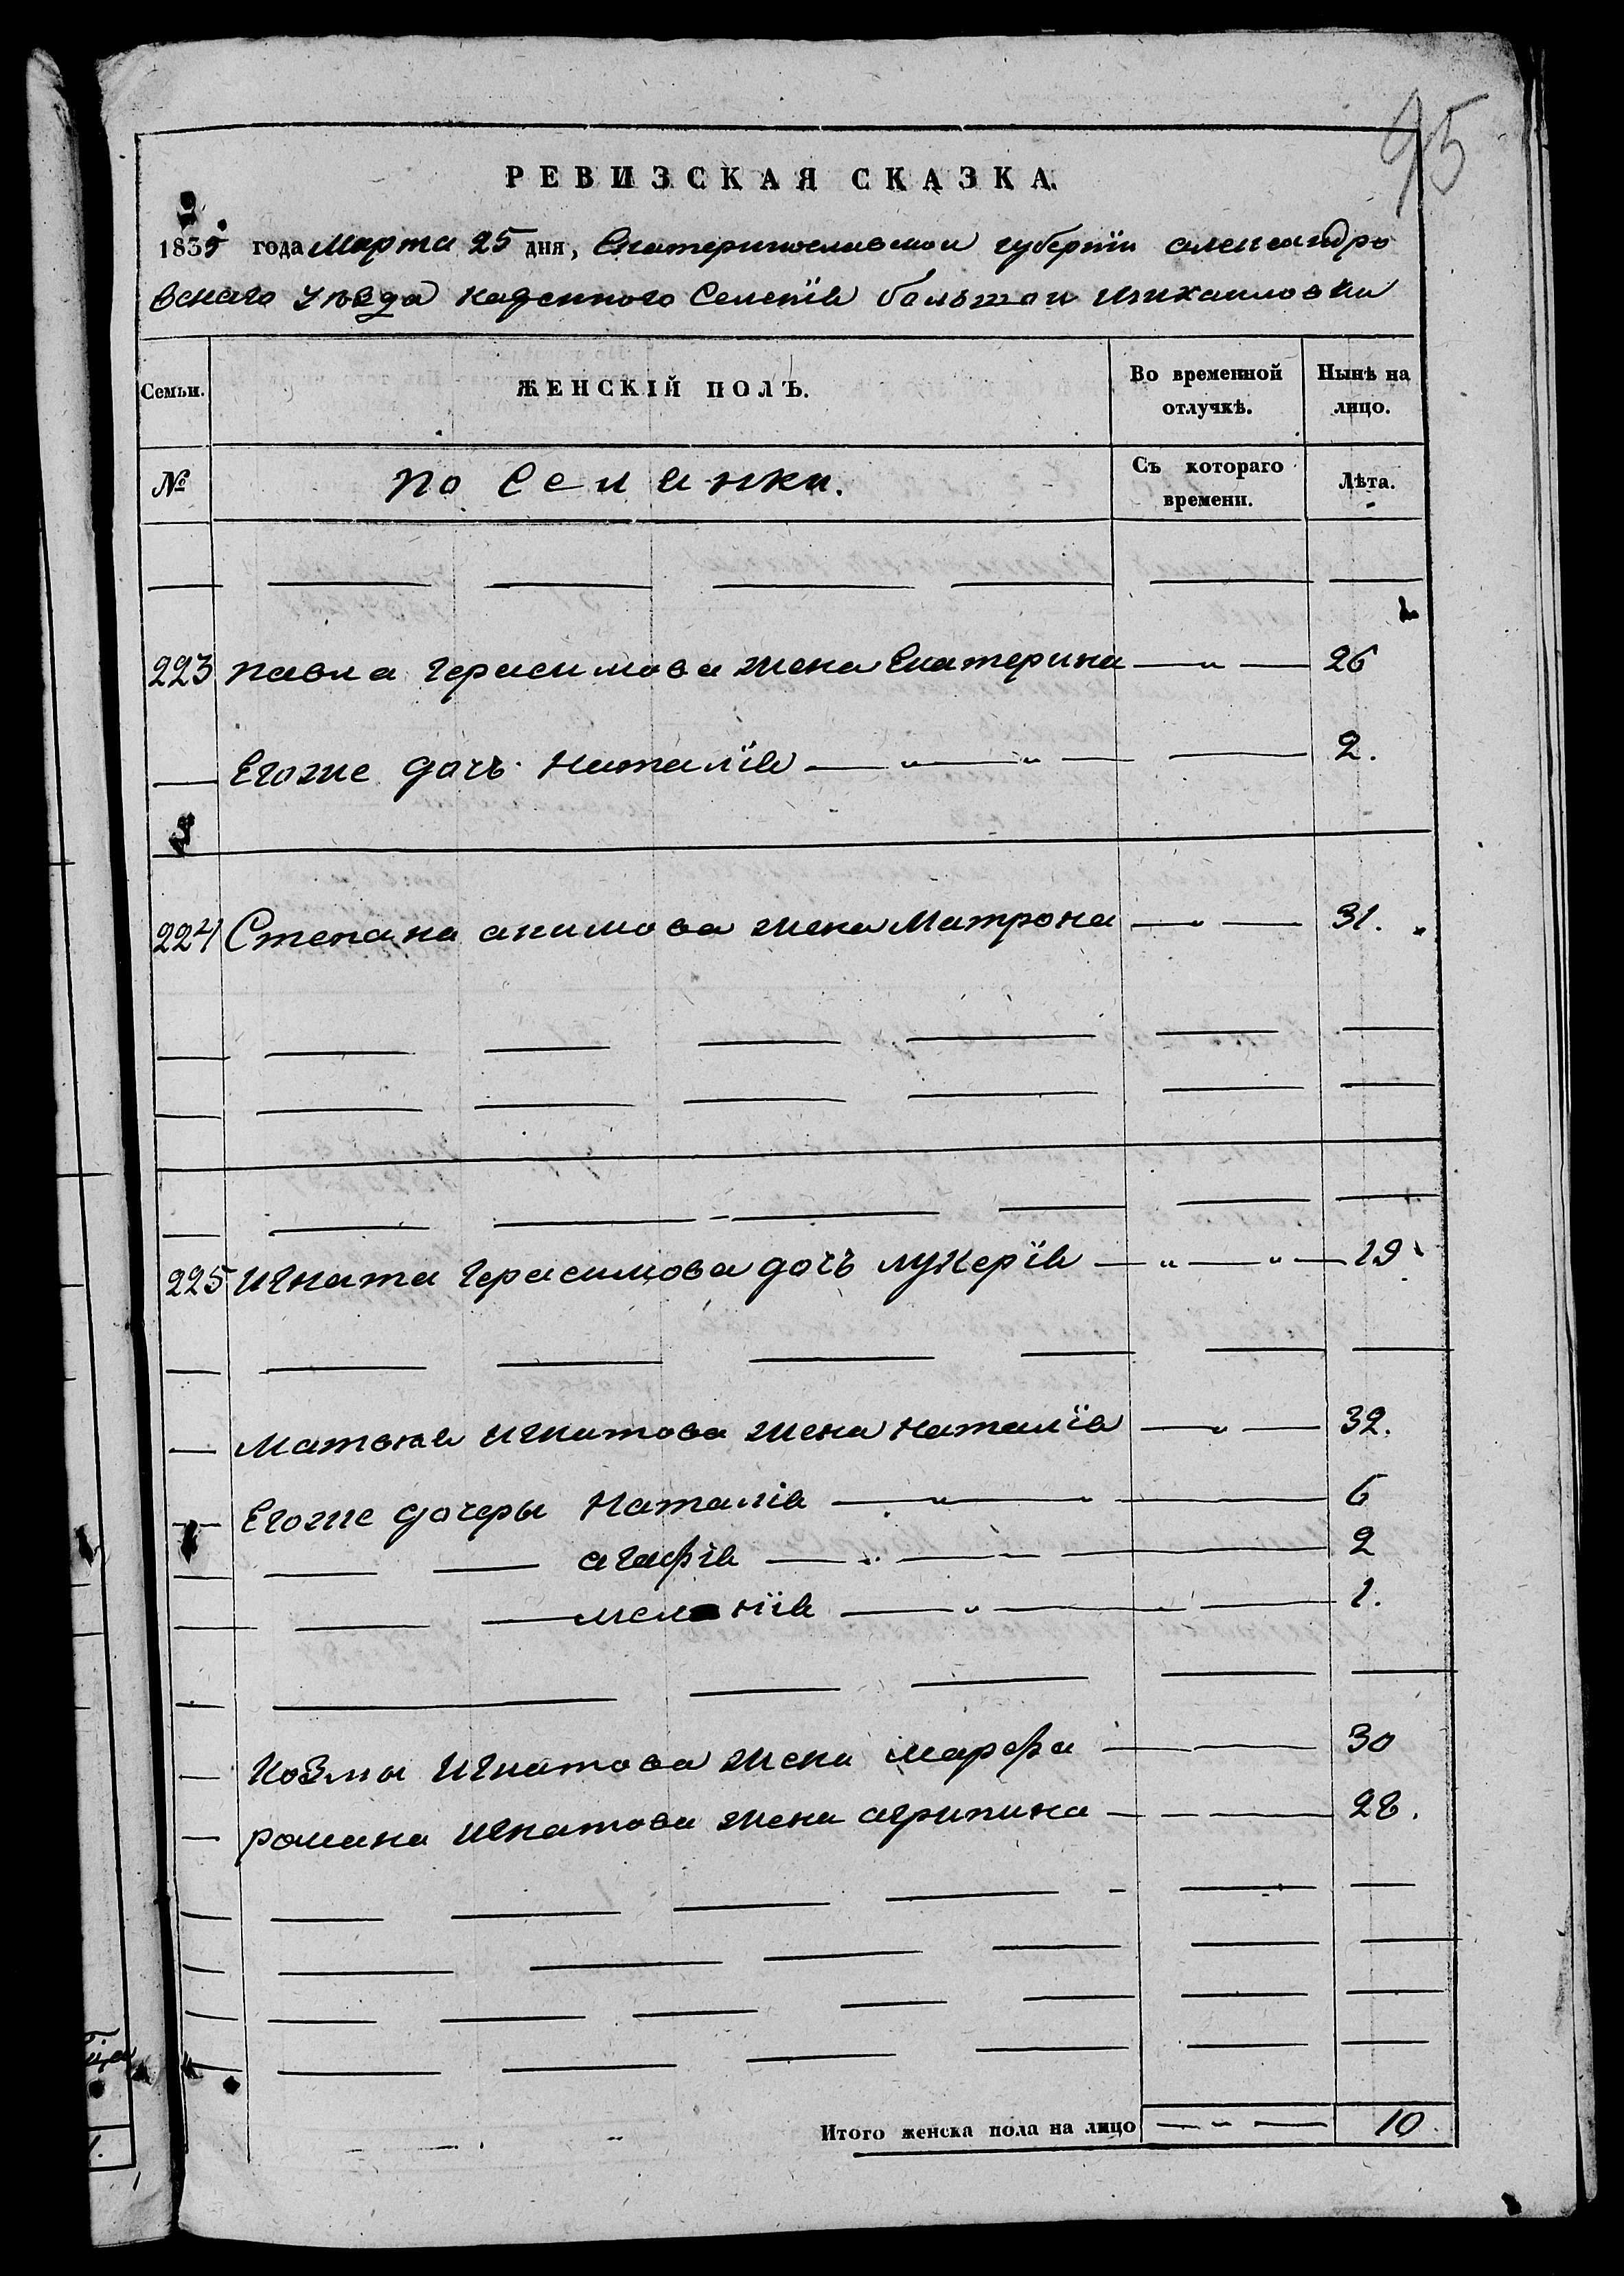 95
РЕВИЗСКАЯ СКАЗКА.
1835 года Марта 25 дня, Екатеринославской губернїи александро
вскаго уѣзда казенного Селенїя большой михайловки
Семьи. ЖЕНСКІЙ ПОЛЪ. Во временной отлучкѣ. Нынѣ на лицо.
№ Съ котораго времени. Лѣта.
223 павла герасимова жена Екатерина — „ — 26
Егоже дочь наталїя — „ — „ — 2.
224 Степана акимова жена Матрона — „ — 31.
225 игната герасимова дочь лукерїя — „ — „ — 19
матвея игнатова жена наталїя — „ — 32.
Егоже дочеры Наталія — „ — 6
агафія — „ — 2
меланїя — „ — 1.
козмы игнатова жена марфа — 30
романа игнатова жена агрипина — 28.
Итого женска пола на лицо — „ — 10